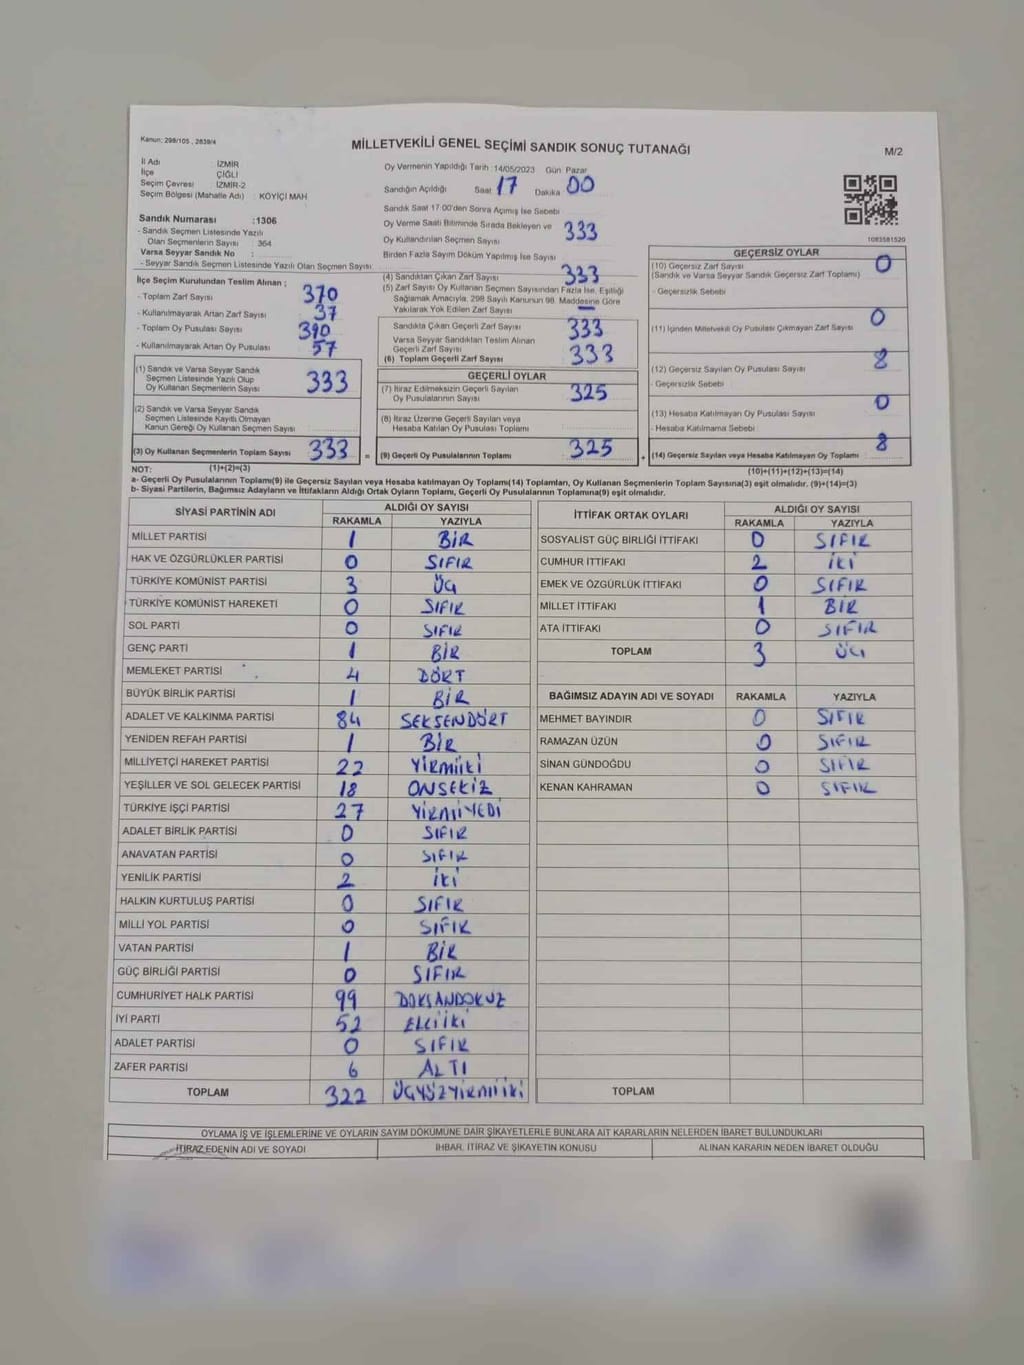 Kanun: 298/105 , 2839/4
MİLLETVEKİLİ GENEL SEÇİMİ SANDIK SONUÇ TUTANAĞI
M/2
İl Adı İZMİR
İlçe ÇİĞLİ
Seçim Çevresi İZMİR-2
Seçim Bölgesi (Mahalle Adı) : KÖYİÇİ MAH
Sandık Numarası :1306
- Sandık Seçmen Listesinde Yazılı
Olan Seçmenlerin Sayısı : 364
Varsa Seyyar Sandık No :
- Seyyar Sandık Seçmen Listesinde Yazılı Olan Seçmen Sayısı
Oy Vermenin Yapıldığı Tarih :14/05/2023 Gün: Pazar
Sandığın Açıldığı Saat 17 Dakika 00
Sandık Saat 17:00'den Sonra Açılmış İse Sebebi
Oy Verme Saati Bitiminde Sırada Bekleyen ve
Oy Kullandırılan Seçmen Sayısı 333
Birden Fazla Sayım Döküm Yapılmış İse Sayısı
1083581520
İlçe Seçim Kurulundan Teslim Alınan ;
- Toplam Zarf Sayısı 370
- Kullanılmayarak Artan Zarf Sayısı 37
- Toplam Oy Pusulası Sayısı 390
- Kullanılmayarak Artan Oy Pusulası 57
(1) Sandık ve Varsa Seyyar Sandık
Seçmen Listesinde Yazılı Olup
Oy Kullanan Seçmenlerin Sayısı 333
(2) Sandık ve Varsa Seyyar Sandık
Seçmen Listesinde Kayıtlı Olmayan
Kanun Gereği Oy Kullanan Seçmen Sayısı
(3) Oy Kullanan Seçmenlerin Toplam Sayısı 333 =
(1)+(2)=(3)
(4) Sandıktan Çıkan Zarf Sayısı 333
(5) Zarf Sayısı Oy Kullanan Seçmen Sayısından Fazla İse, Eşitliği
Sağlamak Amacıyla, 298 Sayılı Kanunun 98. Maddesine Göre
Yakılarak Yok Edilen Zarf Sayısı —
Sandıkta Çıkan Geçerli Zarf Sayısı 333
Varsa Seyyar Sandıktan Teslim Alınan
Geçerli Zarf Sayısı
(6) Toplam Geçerli Zarf Sayısı 333
GEÇERLİ OYLAR
(7) İtiraz Edilmeksizin Geçerli Sayılan
Oy Pusulalarının Sayısı 325
(8) İtiraz Üzerine Geçerli Sayılan veya
Hesaba Katılan Oy Pusulası Toplamı
(9) Geçerli Oy Pusulalarının Toplamı 325 +
GEÇERSİZ OYLAR
(10) Geçersiz Zarf Sayısı 0
(Sandık ve Varsa Seyyar Sandık Geçersiz Zarf Toplamı)
- Geçersizlik Sebebi
(11) İçinden Milletvekili Oy Pusulası Çıkmayan Zarf Sayısı 0
(12) Geçersiz Sayılan Oy Pusulası Sayısı 8
- Geçersizlik Sebebi
(13) Hesaba Katılmayan Oy Pusulası Sayısı 0
- Hesaba Katılmama Sebebi
(14) Geçersiz Sayılan veya Hesaba Katılmayan Oy Toplamı 8
(10)+(11)+(12)+(13)=(14)
NOT:
a- Geçerli Oy Pusulalarının Toplamı(9) ile Geçersiz Sayılan veya Hesaba Katılmayan Oy Toplamı(14) Toplamları, Oy Kullanan Seçmenlerin Toplam Sayısına(3) eşit olmalıdır. (9)+(14)=(3)
b- Siyasi Partilerin, Bağımsız Adayların ve İttifakların Aldığı Ortak Oyların Toplamı, Geçerli Oy Pusulalarının Toplamına(9) eşit olmalıdır.
SİYASİ PARTİNİN ADI ALDIĞI OY SAYISI
RAKAMLA YAZIYLA
MİLLET PARTİSİ 1 BİR
HAK VE ÖZGÜRLÜKLER PARTİSİ 0 SIFIR
TÜRKİYE KOMÜNİST PARTİSİ 3 ÜÇ
TÜRKİYE KOMÜNİST HAREKETİ 0 SIFIR
SOL PARTİ 0 SIFIR
GENÇ PARTİ 1 BİR
MEMLEKET PARTİSİ 4 DÖRT
BÜYÜK BİRLİK PARTİSİ 1 BİR
ADALET VE KALKINMA PARTİSİ 84 SEKSENDÖRT
YENİDEN REFAH PARTİSİ 1 BİR
MİLLİYETÇİ HAREKET PARTİSİ 22 YİRMİİKİ
YEŞİLLER VE SOL GELECEK PARTİSİ 18 ONSEKİZ
TÜRKİYE İŞÇİ PARTİSİ 27 YİRMİYEDİ
ADALET BİRLİK PARTİSİ 0 SIFIR
ANAVATAN PARTİSİ 0 SIFIR
YENİLİK PARTİSİ 2 İKİ
HALKIN KURTULUŞ PARTİSİ 0 SIFIR
MİLLİ YOL PARTİSİ 0 SIFIR
VATAN PARTİSİ 1 BİR
GÜÇ BİRLİĞİ PARTİSİ 0 SIFIR
CUMHURİYET HALK PARTİSİ 99 DOKSANDOKUZ
İYİ PARTİ 52 ELLİİKİ
ADALET PARTİSİ 0 SIFIR
ZAFER PARTİSİ 6 ALTI
TOPLAM 322 ÜÇYÜZYİRMİİKİ
İTTİFAK ORTAK OYLARI ALDIĞI OY SAYISI
RAKAMLA YAZIYLA
SOSYALİST GÜÇ BİRLİĞİ İTTİFAKI 0 SIFIR
CUMHUR İTTİFAKI 2 İKİ
EMEK VE ÖZGÜRLÜK İTTİFAKI 0 SIFIR
MİLLET İTTİFAKI 1 BİR
ATA İTTİFAKI 0 SIFIR
TOPLAM 3 ÜÇ
BAĞIMSIZ ADAYIN ADI VE SOYADI RAKAMLA YAZIYLA
MEHMET BAYINDIR 0 SIFIR
RAMAZAN ÜZÜN 0 SIFIR
SİNAN GÜNDOĞDU 0 SIFIR
KENAN KAHRAMAN 0 SIFIR
TOPLAM
OYLAMA İŞ VE İŞLEMLERİNE VE OYLARIN SAYIM DÖKÜMÜNE DAİR ŞİKAYETLERLE BUNLARA AİT KARARLARIN NELERDEN İBARET BULUNDUKLARI
İTİRAZ EDENİN ADI VE SOYADI İHBAR, İTİRAZ VE ŞİKAYETİN KONUSU ALINAN KARARIN NEDEN İBARET OLDUĞU